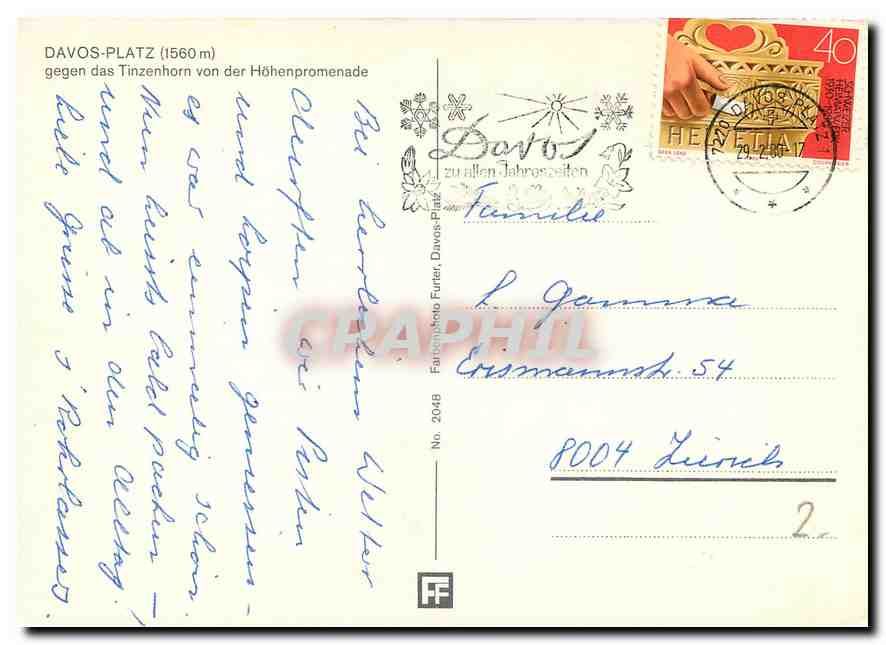 DAVOS-PLATZ (1560 m)
gegen das Tinzenhorn von der Höhenpromenade
Bei herrlichem Wetter
durften wir Pisten
und Loipen geniessen –
es war einmalig schön.
Nun heissts bald packen –
und ab in den Alltag!
Liebe Grüsse
No. 2048 Farbenphoto Furter, Davos-Platz
FF
Davos
zu allen Jahreszeiten
40
HELVETIA
7270 DAVOS PLATZ 1
29.2.80-17
Familie
Gamma
Erismannstr. 54
8004 Zürich
2.-
CPAPHIL